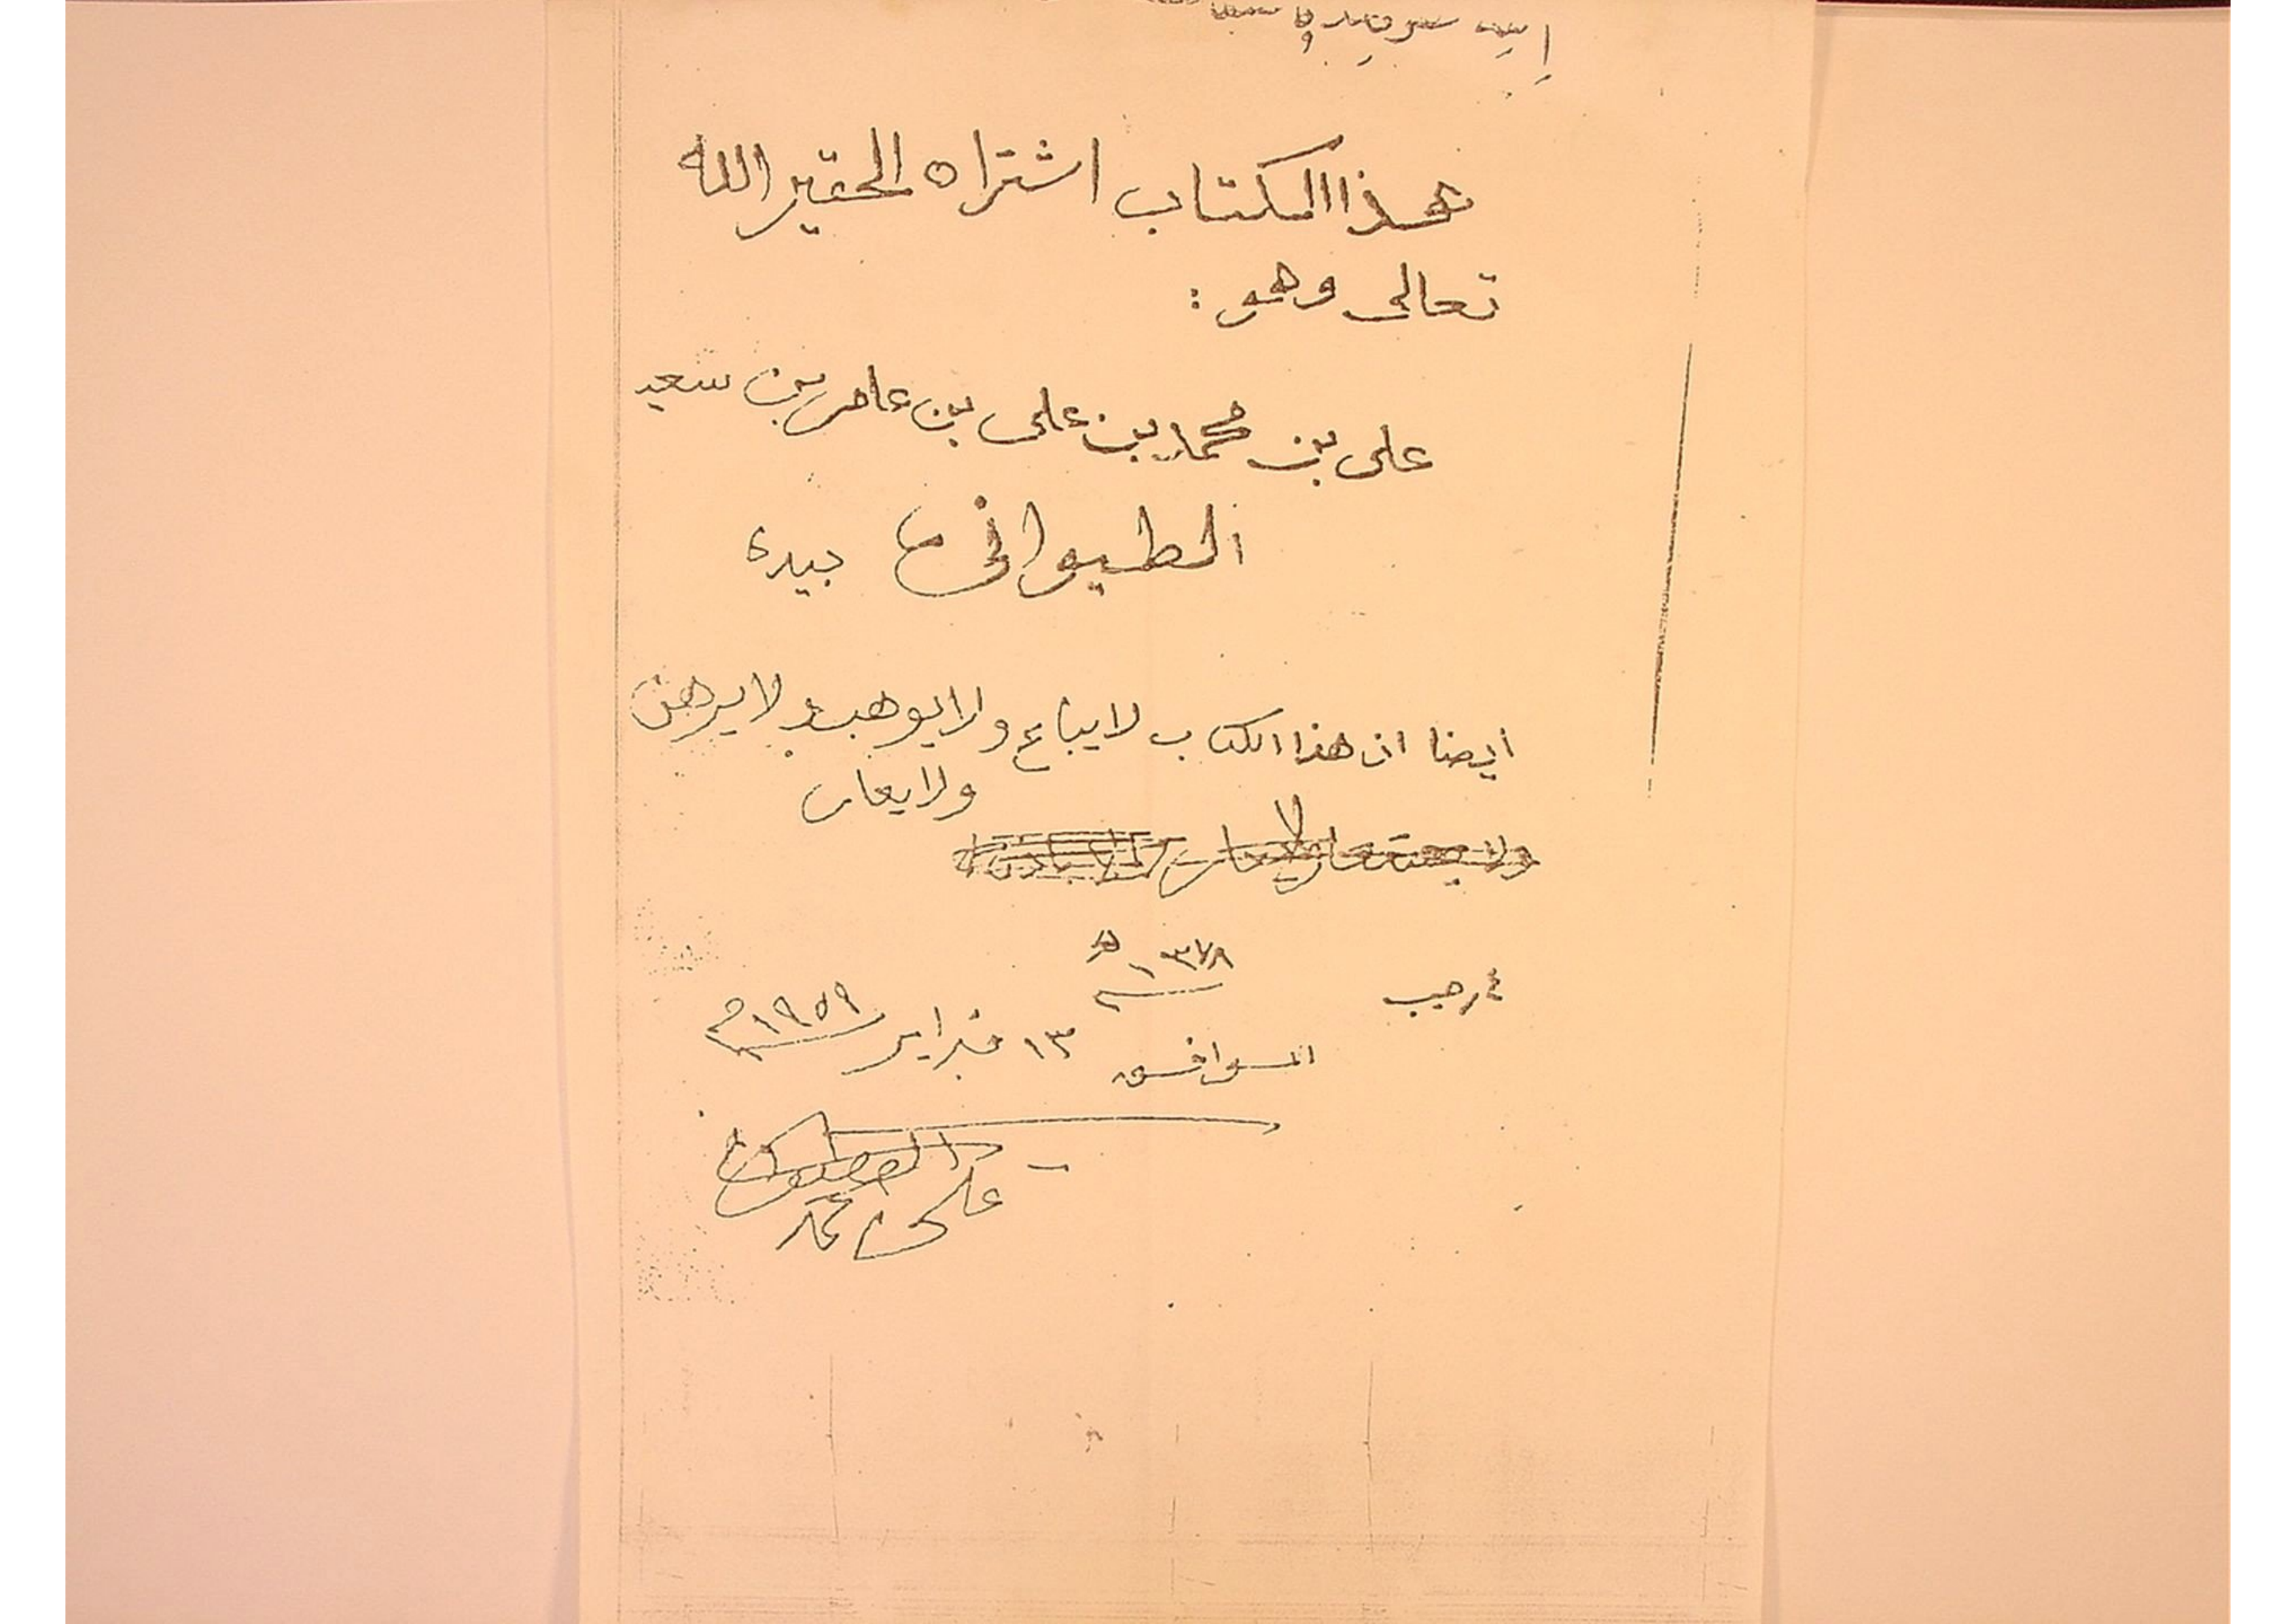 هذا الكتاب اشتراه الحقير الله
تعالى وهو :
علي بن محمد بن علي بن عامر بن سعيد
الطيواني بيده
ايضا ان هذا الكتاب لا يباع ولا يوهب ولا يرهن
ولا يعار
٤ رجب ١٣٧٨ هـ
الموافق ١٣ فبراير ١٩٥٩ م
علي محمد